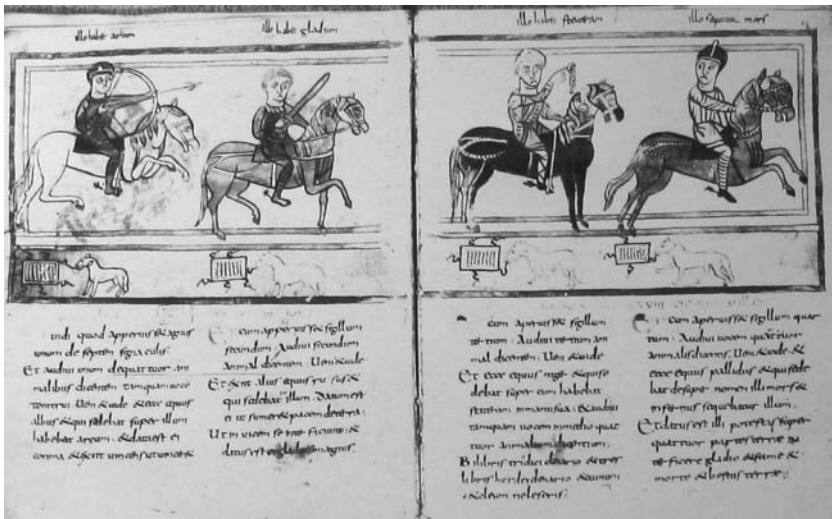 ille habet arcum
ille habet gladium
uidi quod apperuiss& agnus
unum de septem
Et audiui unum dequattuor ani
malibus dicentem tamquam uoce
Ueni &uide &ecce equus
albus &qui sedebat super illum
habebat arcum &data est ei
corona &exiuit
cum apperuiss& sigillum
secundum Audiui secundum
animal dicentem Ueni &uide
Et exiit alius equus rufus &
qui sedebat illum Datum est
ei ut sumer& pacem deterra
Ut inuicem se &
datus est ei gladius magnus
ille habet stateram
mors
cum aperuiss& sigillum
tertium Audiui tertium ani
mal dicentem Ueni &uide
Et ecce equus niger &qui se
debat super eum habebat
stateram inmanu sua &audiui
tamquam uocem inmedio quat
tuor animalium dicentium
Bilibris tritici denario &tres
libris hordei denario &uinum
&oleum
Cum aperuiss& sigillum quar
tum Audiui uocem quarti
animalis dicentis Ueni &uide &
ecce equus pallidus &qui sede
bat desuper nomen illi mors &
infernus sequebatur illum
Et data est illi potestas super
quattuor partes terrae
interficere gladio &fame &
morte &bestiis terrae